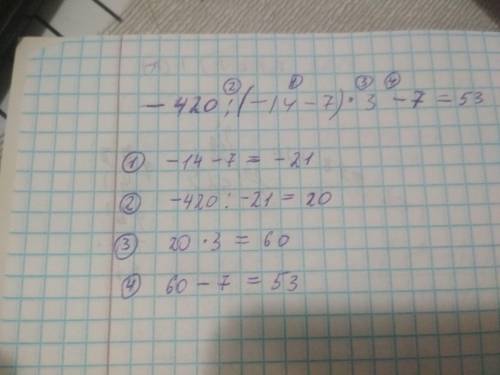 ② ① ③ ④
-420 : (-14 - 7) · 3 - 7 = 53
① -14 - 7 = -21
② -420 : -21 = 20
③ 20 · 3 = 60
④ 60 - 7 = 53